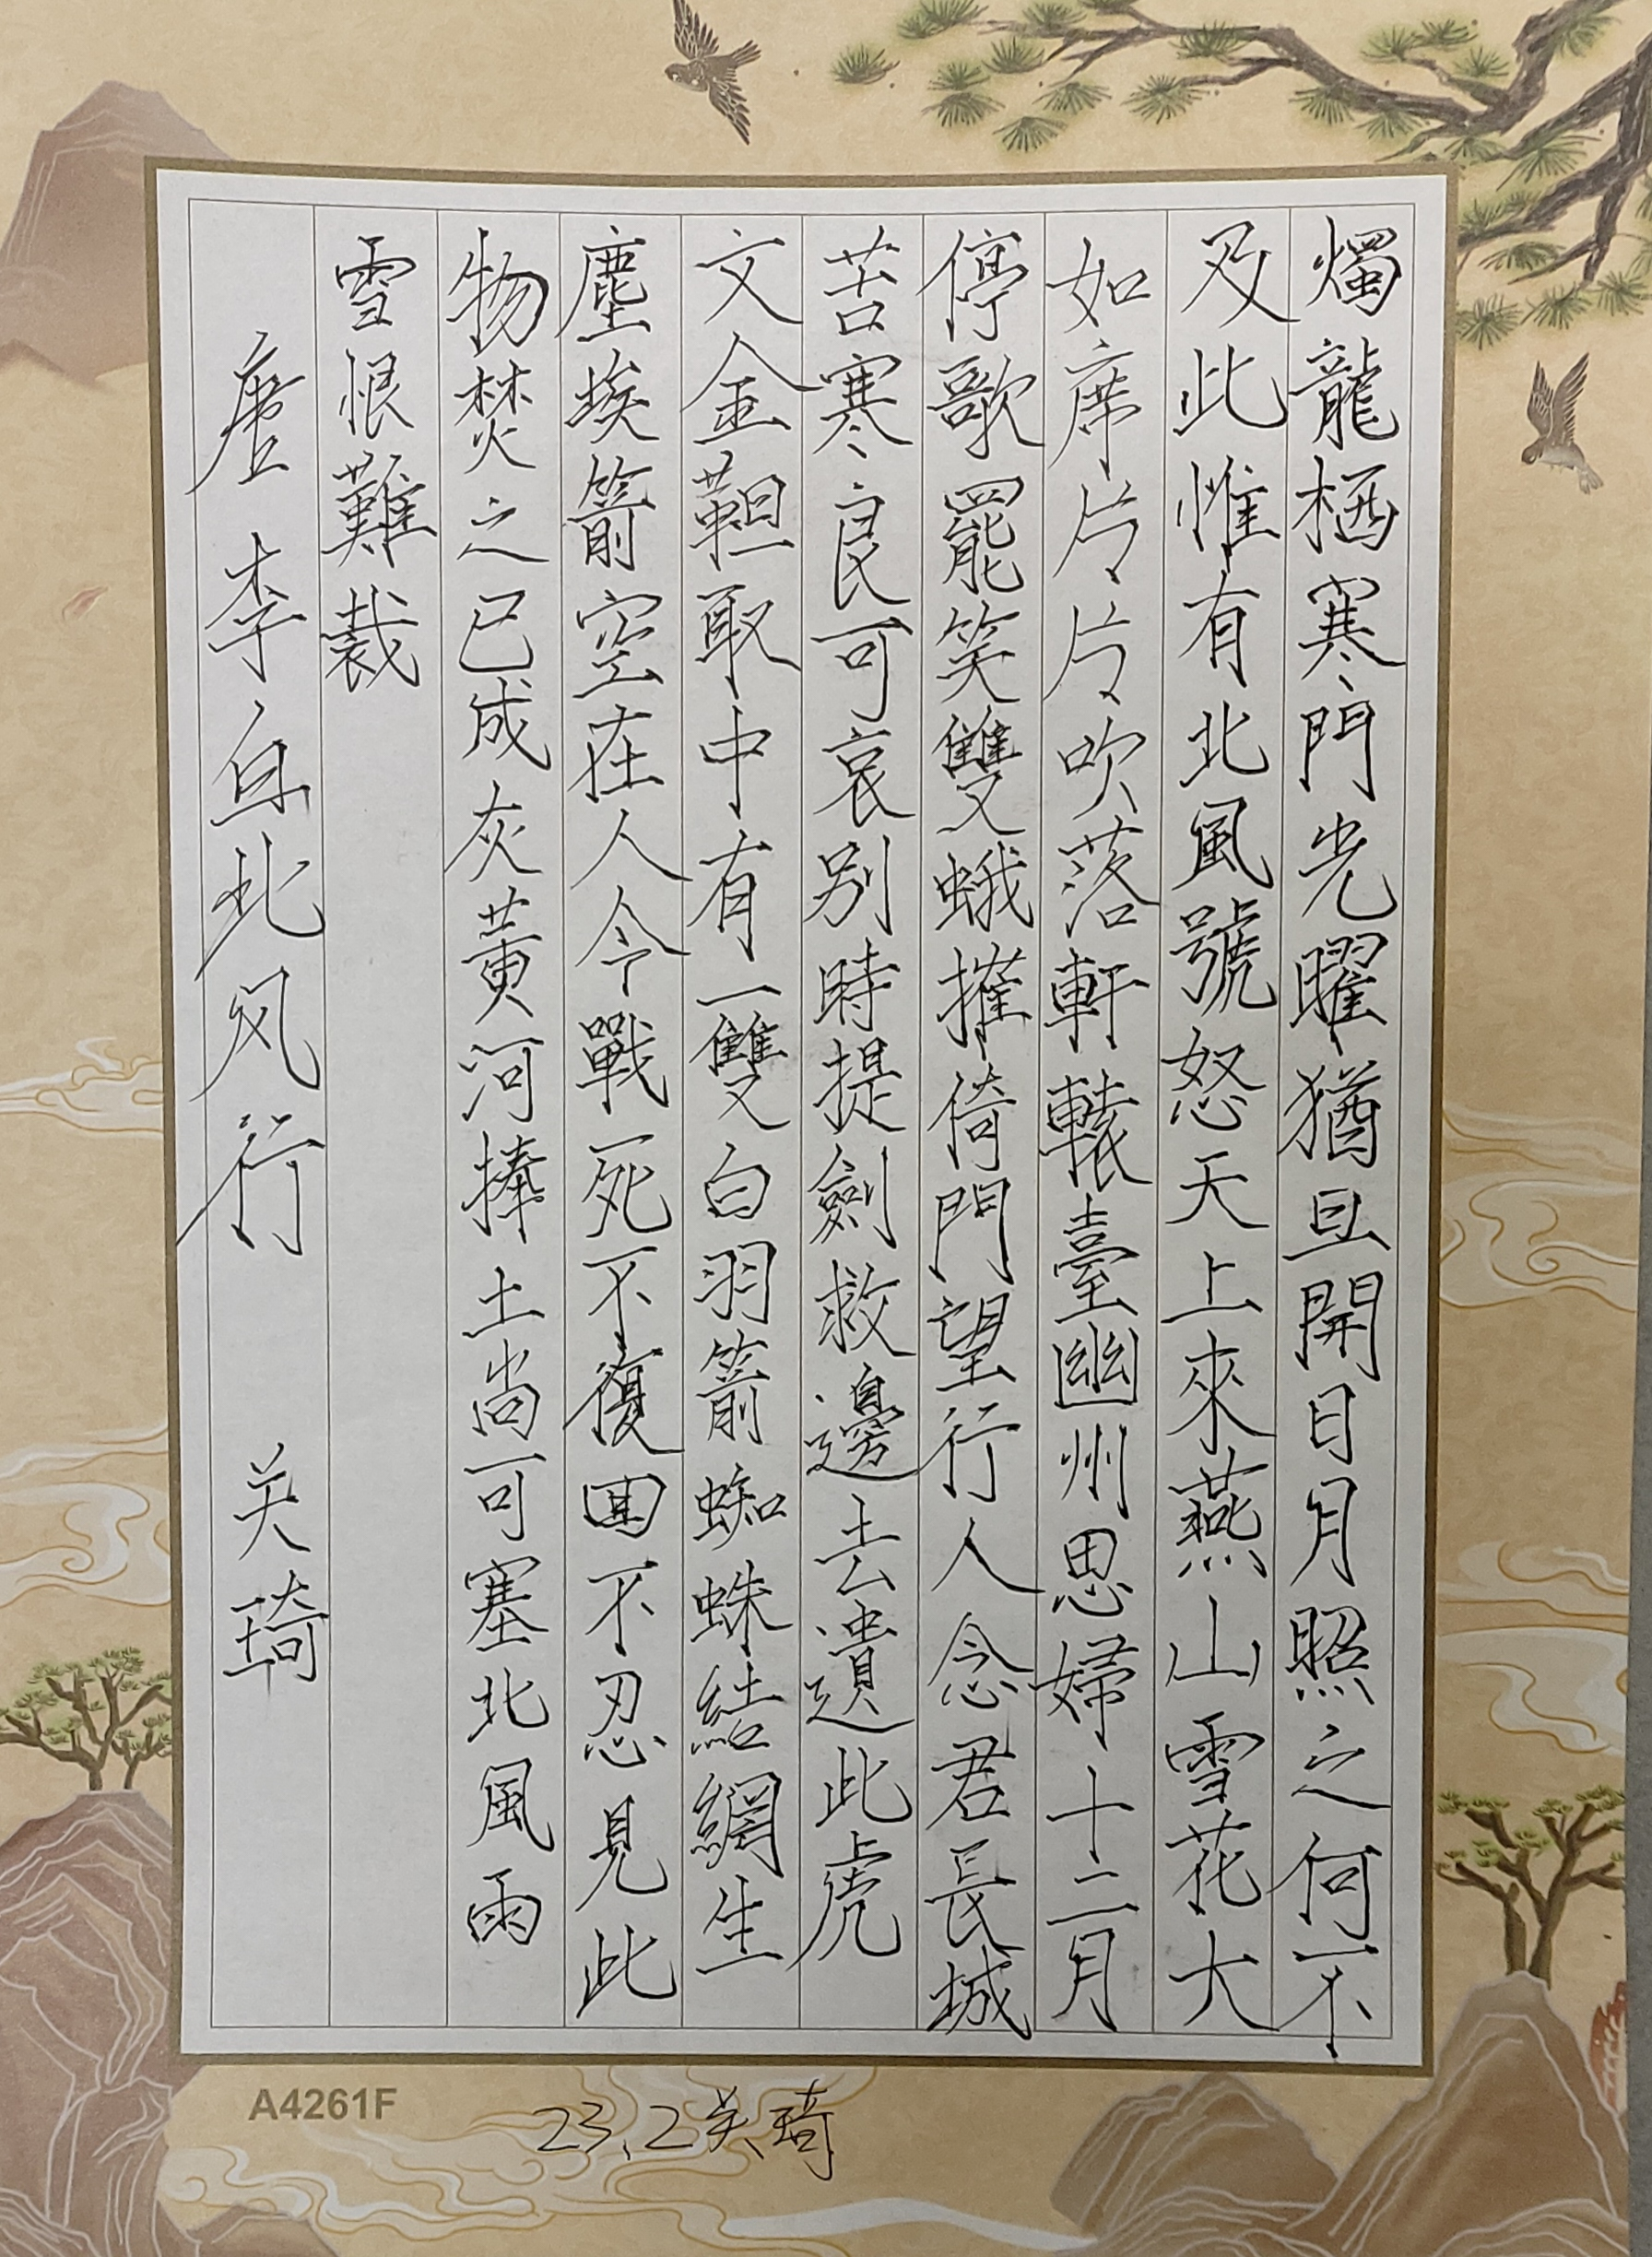 燭龍栖寒門光曜猶旦開日月照之何不
及此惟有北風號怒天上來燕山雪花大
如席片片吹落軒轅臺幽州思婦十二月
停歌罷笑雙蛾摧倚門望行人念君長城
苦寒良可哀別時提劍救邊去遺此虎
文金鞞取中有一雙白羽箭蜘蛛結網生
塵埃箭空在人今戰死不復回不忍見此
物焚之已成灰黃河捧土尚可塞北風雨
雪恨難裁
唐李白北风行 关琦
A4261F
23.2关琦